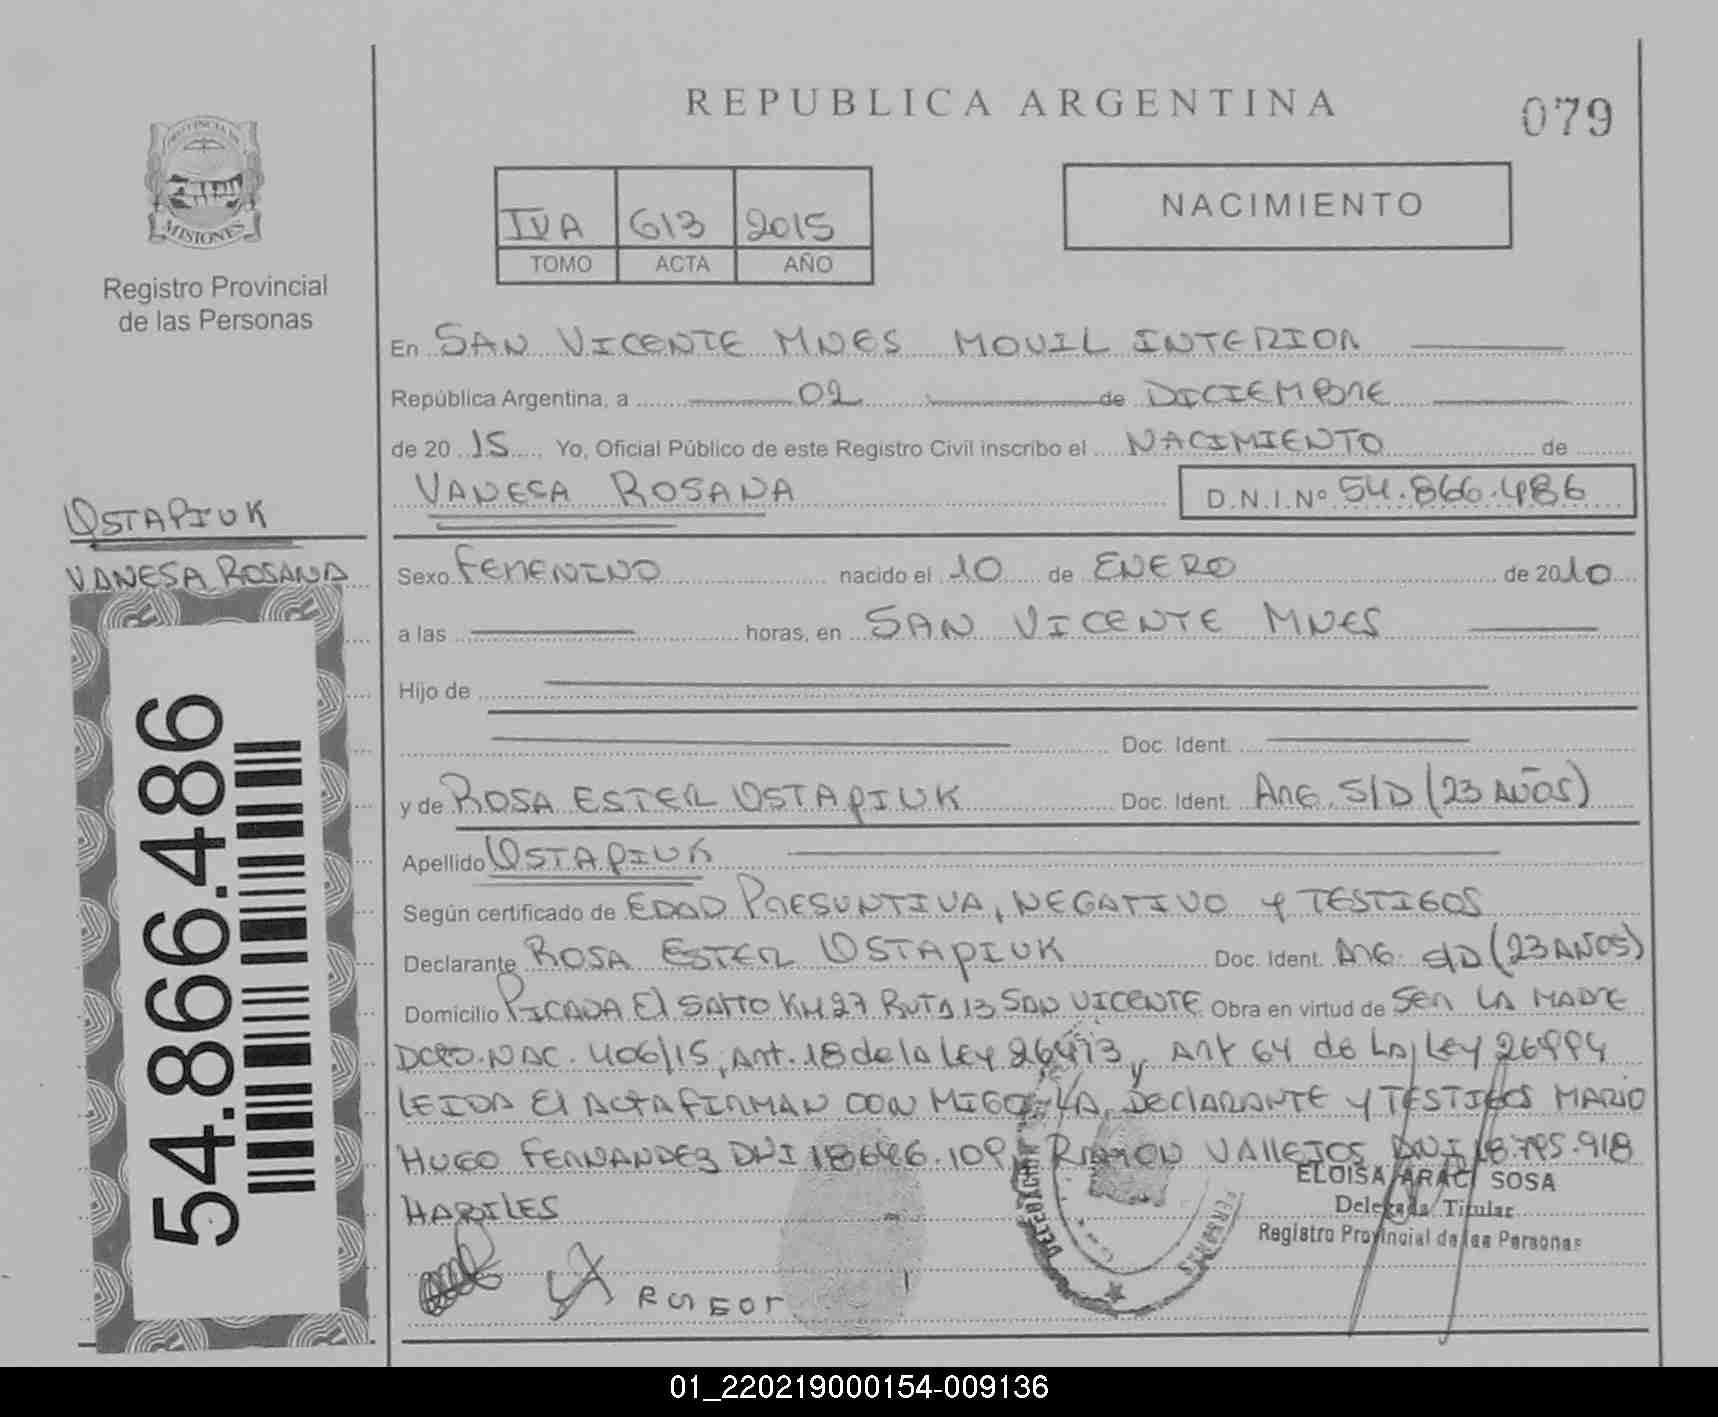 REPUBLICA ARGENTINA
079
PROVINCIA DE
MISIONES
Registro Provincial
de las Personas
IVA 613 2015
TOMO ACTA AÑO
NACIMIENTO
En SAN VICENTE MNES MOVIL INTERIOR
República Argentina, a 02 de DICIEMBRE
de 2015 Yo, Oficial Público de este Registro Civil inscribo el NACIMIENTO de
VANESA ROSANA D.N.I.Nº 54.866.486
OSTAPIUK
VANESA ROSANA
54.866.486
Sexo FEMENINO nacido el 10 de ENERO de 2010
a las horas, en SAN VICENTE MNES
Hijo de
Doc. Ident.
y de ROSA ESTER OSTAPIUK Doc. Ident. ARG. S/D (23 AÑOS)
Apellido OSTAPIUK
Según certificado de EDAD PRESUNTIVA, NEGATIVO Y TESTIGOS
Declarante ROSA ESTER OSTAPIUK Doc. Ident. ARG. S/D (23 AÑOS)
Domicilio PICADA El SALTO KM 27 RUTA 13 SAN VICENTE Obra en virtud de SER LA MADRE
DCTO. NAC. 406/15, Art. 18 de la Ley 26413 y Art 64 de LA Ley 26994
LEIDA El ACTA FIRMAN CON MIGO LA DEClARANTE Y TESTIGOS MARIO
HUGO FERNANDEZ DNI 18646.109, RAMON VAllEJOS DNI 18.795.918
HABILES
ELOISA ARACI SOSA
Delegada Titular
Registro Provincial de las Personas
DELEGACION
PERSONAS
01_220219000154-009136